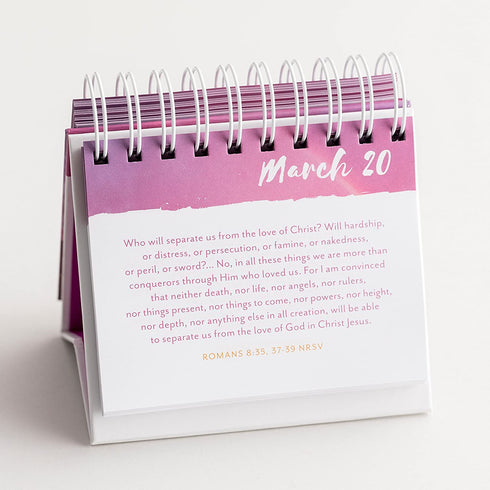 March 20
Who will separate us from the love of Christ? Will hardship,
or distress, or persecution, or famine, or nakedness,
or peril, or sword?... No, in all these things we are more than
conquerors through Him who loved us. For I am convinced
that neither death, nor life, nor angels, nor rulers,
nor things present, nor things to come, nor powers, nor height,
nor depth, nor anything else in all creation, will be able
to separate us from the love of God in Christ Jesus.
ROMANS 8:35, 37-39 NRSV